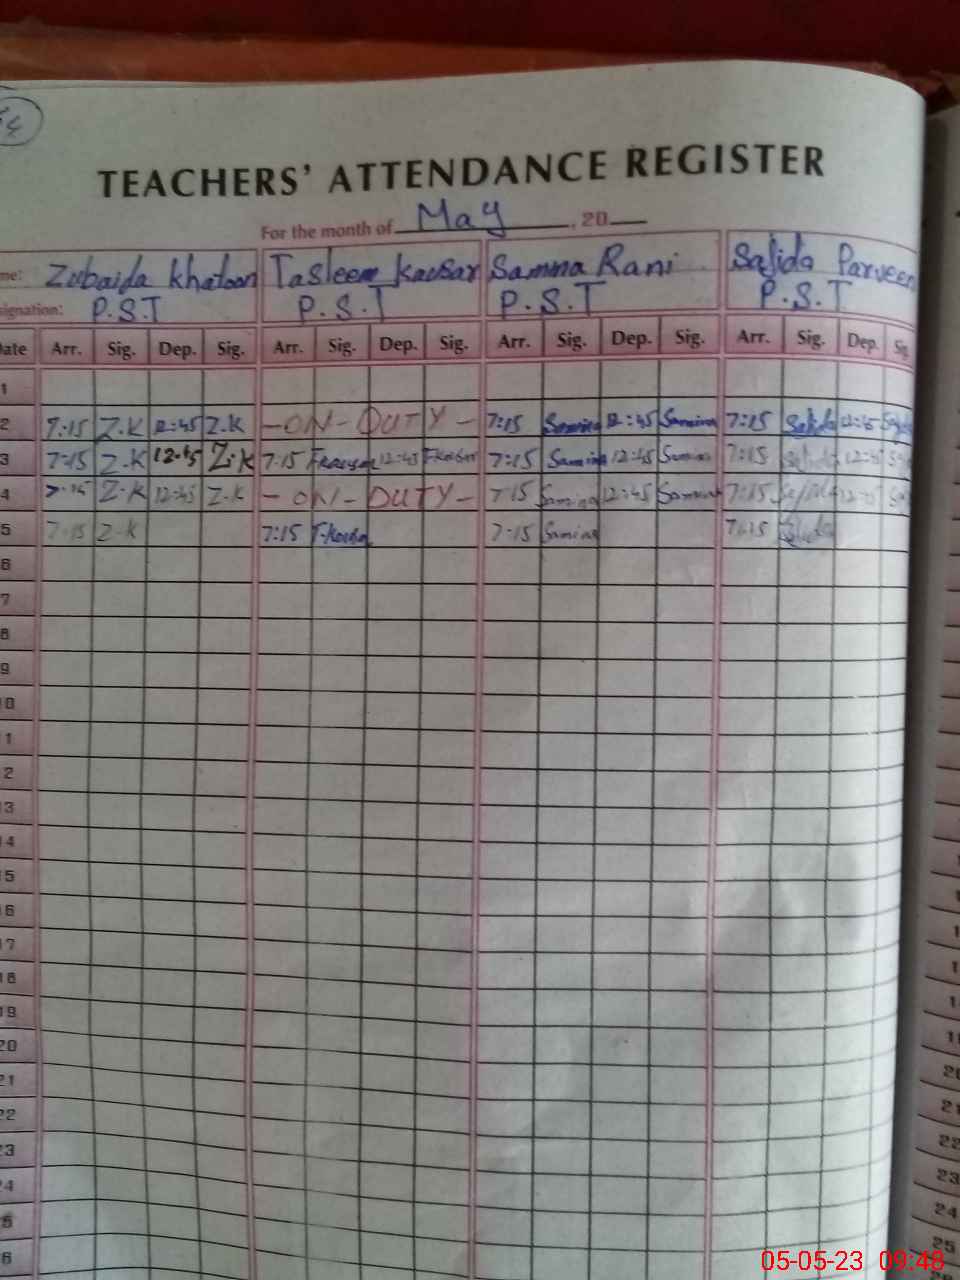 TEACHERS' ATTENDANCE REGISTER
For the month of May, 20
me: Zubaida Khatoon Tasleem Kausar Samina Rani Sajida Parveen
signation: P.S.T P.S.T P.S.T P.S.T
Date Arr. Sig. Dep. Sig. Arr. Sig. Dep. Sig. Arr. Sig. Dep. Sig. Arr. Sig. Dep. Sig
1
2 7:15 Z.K 12:45 Z.K -ON-DUTY- 7:15 Samina 12:45 Samina 7:15 Sajida 12:45
3 7:15 Z.K 12:45 Z.K 7:15 12:45 7:15 Samina 12:45 Samina 7:15 Sajida 12:45
4 7:15 Z.K 12:45 Z.K -ON-DUTY- 7:15 Samina 12:45 Samina 7:15 Sajida 12:45
5 7:15 Z.K 7:15 7:15 Samina 7:15 Sajida
6
7
8
9
10
11
12
13
14
15
16
17
18
19
20
21
22
23
24
25
26
05-05-23 09:48